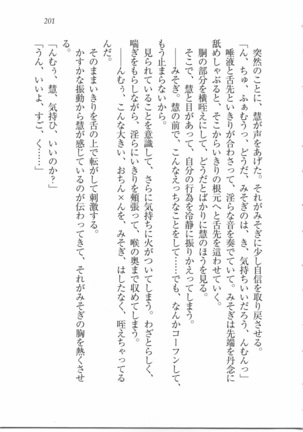 201
突然のことに、慧が声をあげた。それがみそぎに少し自信を取り戻させる。
「ん、ちゅ、ふぁむうっ、どうだ、みそぎのは、き、気持ちいいだろう、んむんっ」
唾液と舌先といきりが合わさって、淫らな音を奏でていく。みそぎは先端を丹念に
舐めしゃぶると、そこからいきりの根元へと舌先を這わせていく。
胴の部分を横咥えにして、どうだとばかりに慧のほうを見る。
そこで、慧と目があって、自分の行為を冷静に振りかえってしまう。
――みそぎ。慧の前で、こんなえっちなことをして……でも、なんかコーフンして、
もう止まらないから。
見られていることを意識して、さらに気持ちに火がついてしまう。わざとらしく、
喘ぎをもらしながら、淫らにいきりを頬張って、喉の奥まで収めてしまう。
――んむぅ、こんな大きい、おちん×んを、みそぎ、はしたなく、咥えちゃってる
んだ。
そのままいきりを舌の上で転がして刺激する。
かすかな振動から慧が感じているのが伝わってきて、それがみそぎの胸を熱くさせ
る。
「んむぅ、慧、気持ひ、いいのか？」
「うん、いいよ、すご、く……」